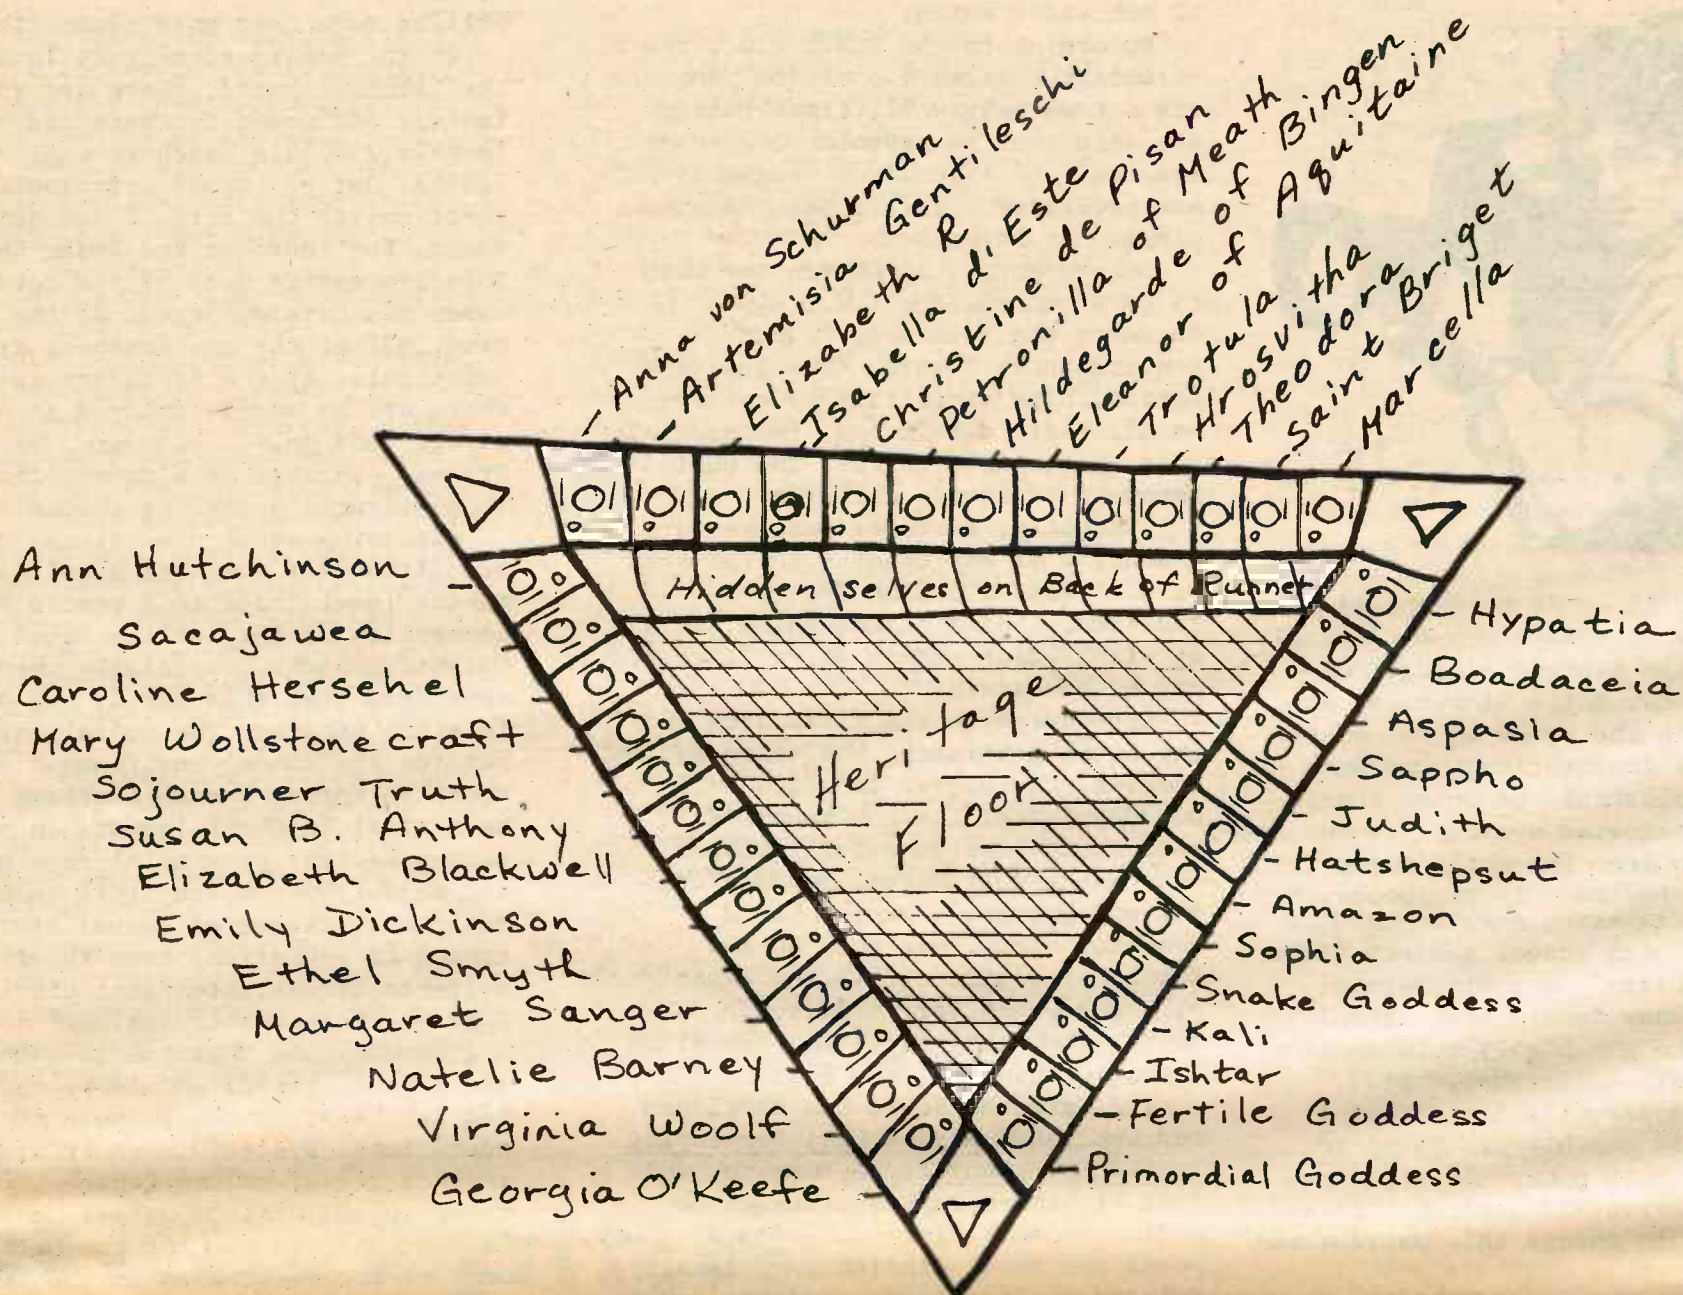 Anna von Schurman
Artemisia Gentileschi
Elizabeth R
Isabella d'Este
Christine de Pisan
Petronilla of Meath
Hildegarde of Bingen
Eleanor of Aquitaine
Trotula
Hrosvitha
Theodora
Saint Briget
Marcella
Hidden selves on Back of Runner
Heritage
Floor
Ann Hutchinson
Sacajawea
Caroline Hersehel
Mary Wollstonecraft
Sojourner Truth
Susan B. Anthony
Elizabeth Blackwell
Emily Dickinson
Ethel Smyth
Margaret Sanger
Natelie Barney
Virginia Woolf
Georgia O'Keefe
Hypatia
Boadaceia
Aspasia
Sappho
Judith
Hatshepsut
Amazon
Sophia
Snake Goddess
Kali
Ishtar
Fertile Goddess
Primordial Goddess